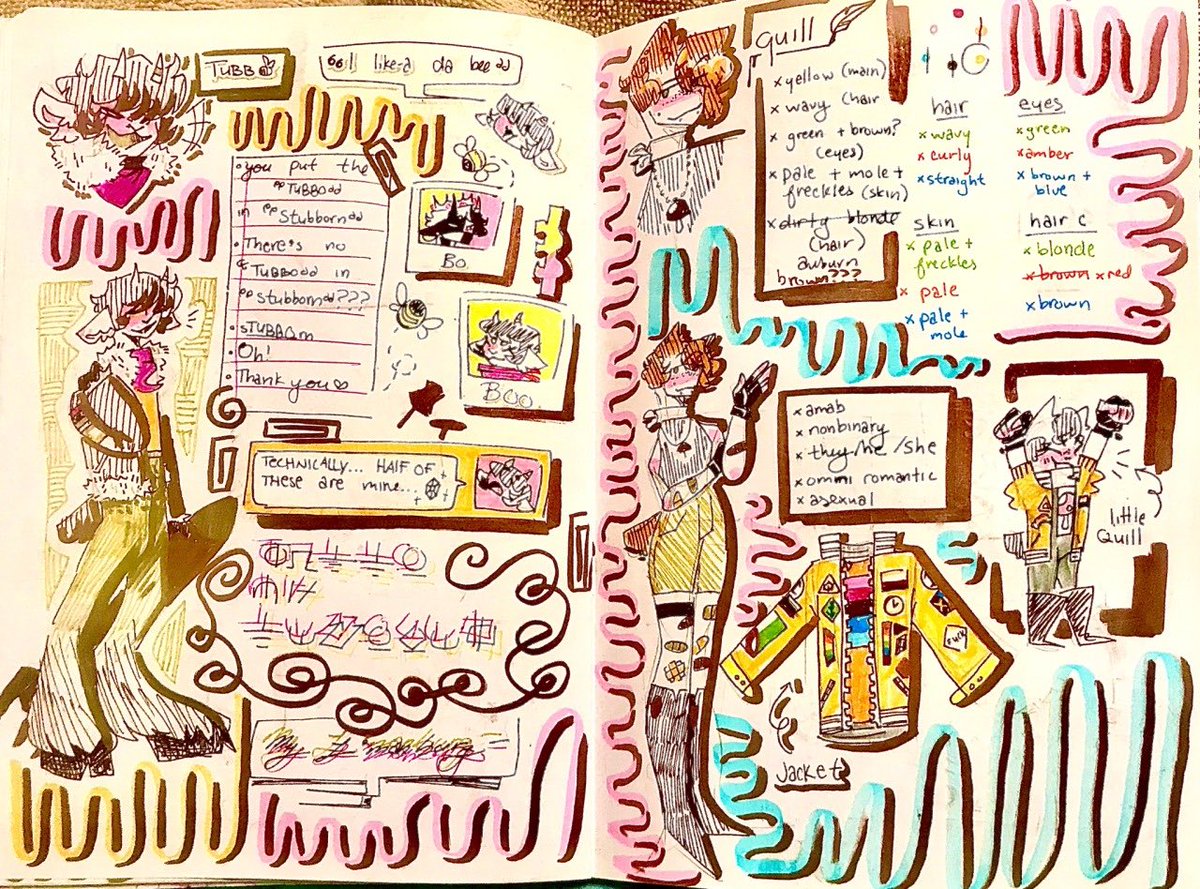 TUBBO
"I like-a da bee"
• you put the
"TUBBO"
in "Stubborn"
• There's no
"TUBBO" in
"stubborn"???
• sTUBBOrn
• Oh!
• Thank you ♡
BO
BOO
TECHNICALLY... HALF OF
THESE ARE MINE...
quill
x yellow (main)
x wavy (hair
x green + brown?
(eyes)
x pale + mole +
freckles (skin)
x dirty blonde
(hair)
auburn
brown???
hair
x wavy
x curly
x straight
eyes
x green
x amber
x brown +
blue
skin
x pale +
freckles
x pale
x pale +
mole
hair c
x blonde
x brown x red
x brown
x amab
x nonbinary
x they/he/she
x omni romantic
x asexual
little
Quill
Jacket